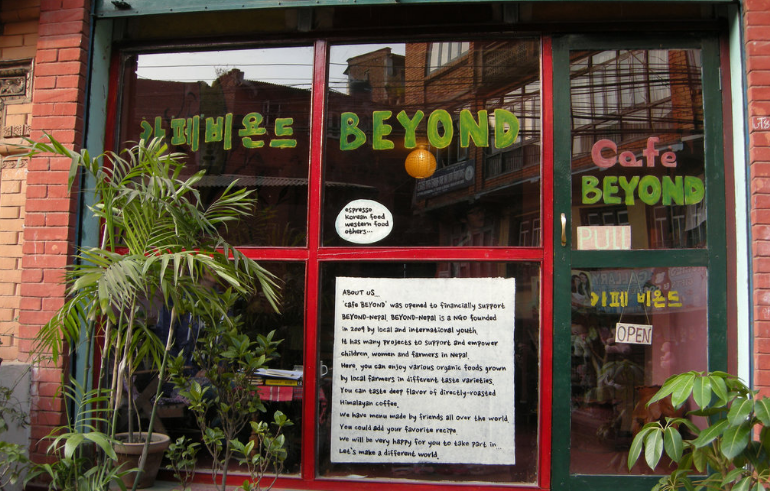 카페비욘드 BEYOND
Cafe
BEYOND
PULL
espresso
Korean food
western food
others...
카페 비욘드
OPEN
ABOUT US...
'cafe BEYOND' was opened to financially support
BEYOND-Nepal. BEYOND-Nepal is a NGO founded
in 2009 by local and international youth.
It has many projects to support and empower
children, women and farmers in Nepal.
Here, you can enjoy various organic foods grown
by local farmers in different taste varieties.
You can taste deep flavor of directly-roasted
Himalayan coffee.
We have menu made by friends all over the world.
You could add your favorite recipe.
We will be very happy for you to take part in...
Let's make a different world.